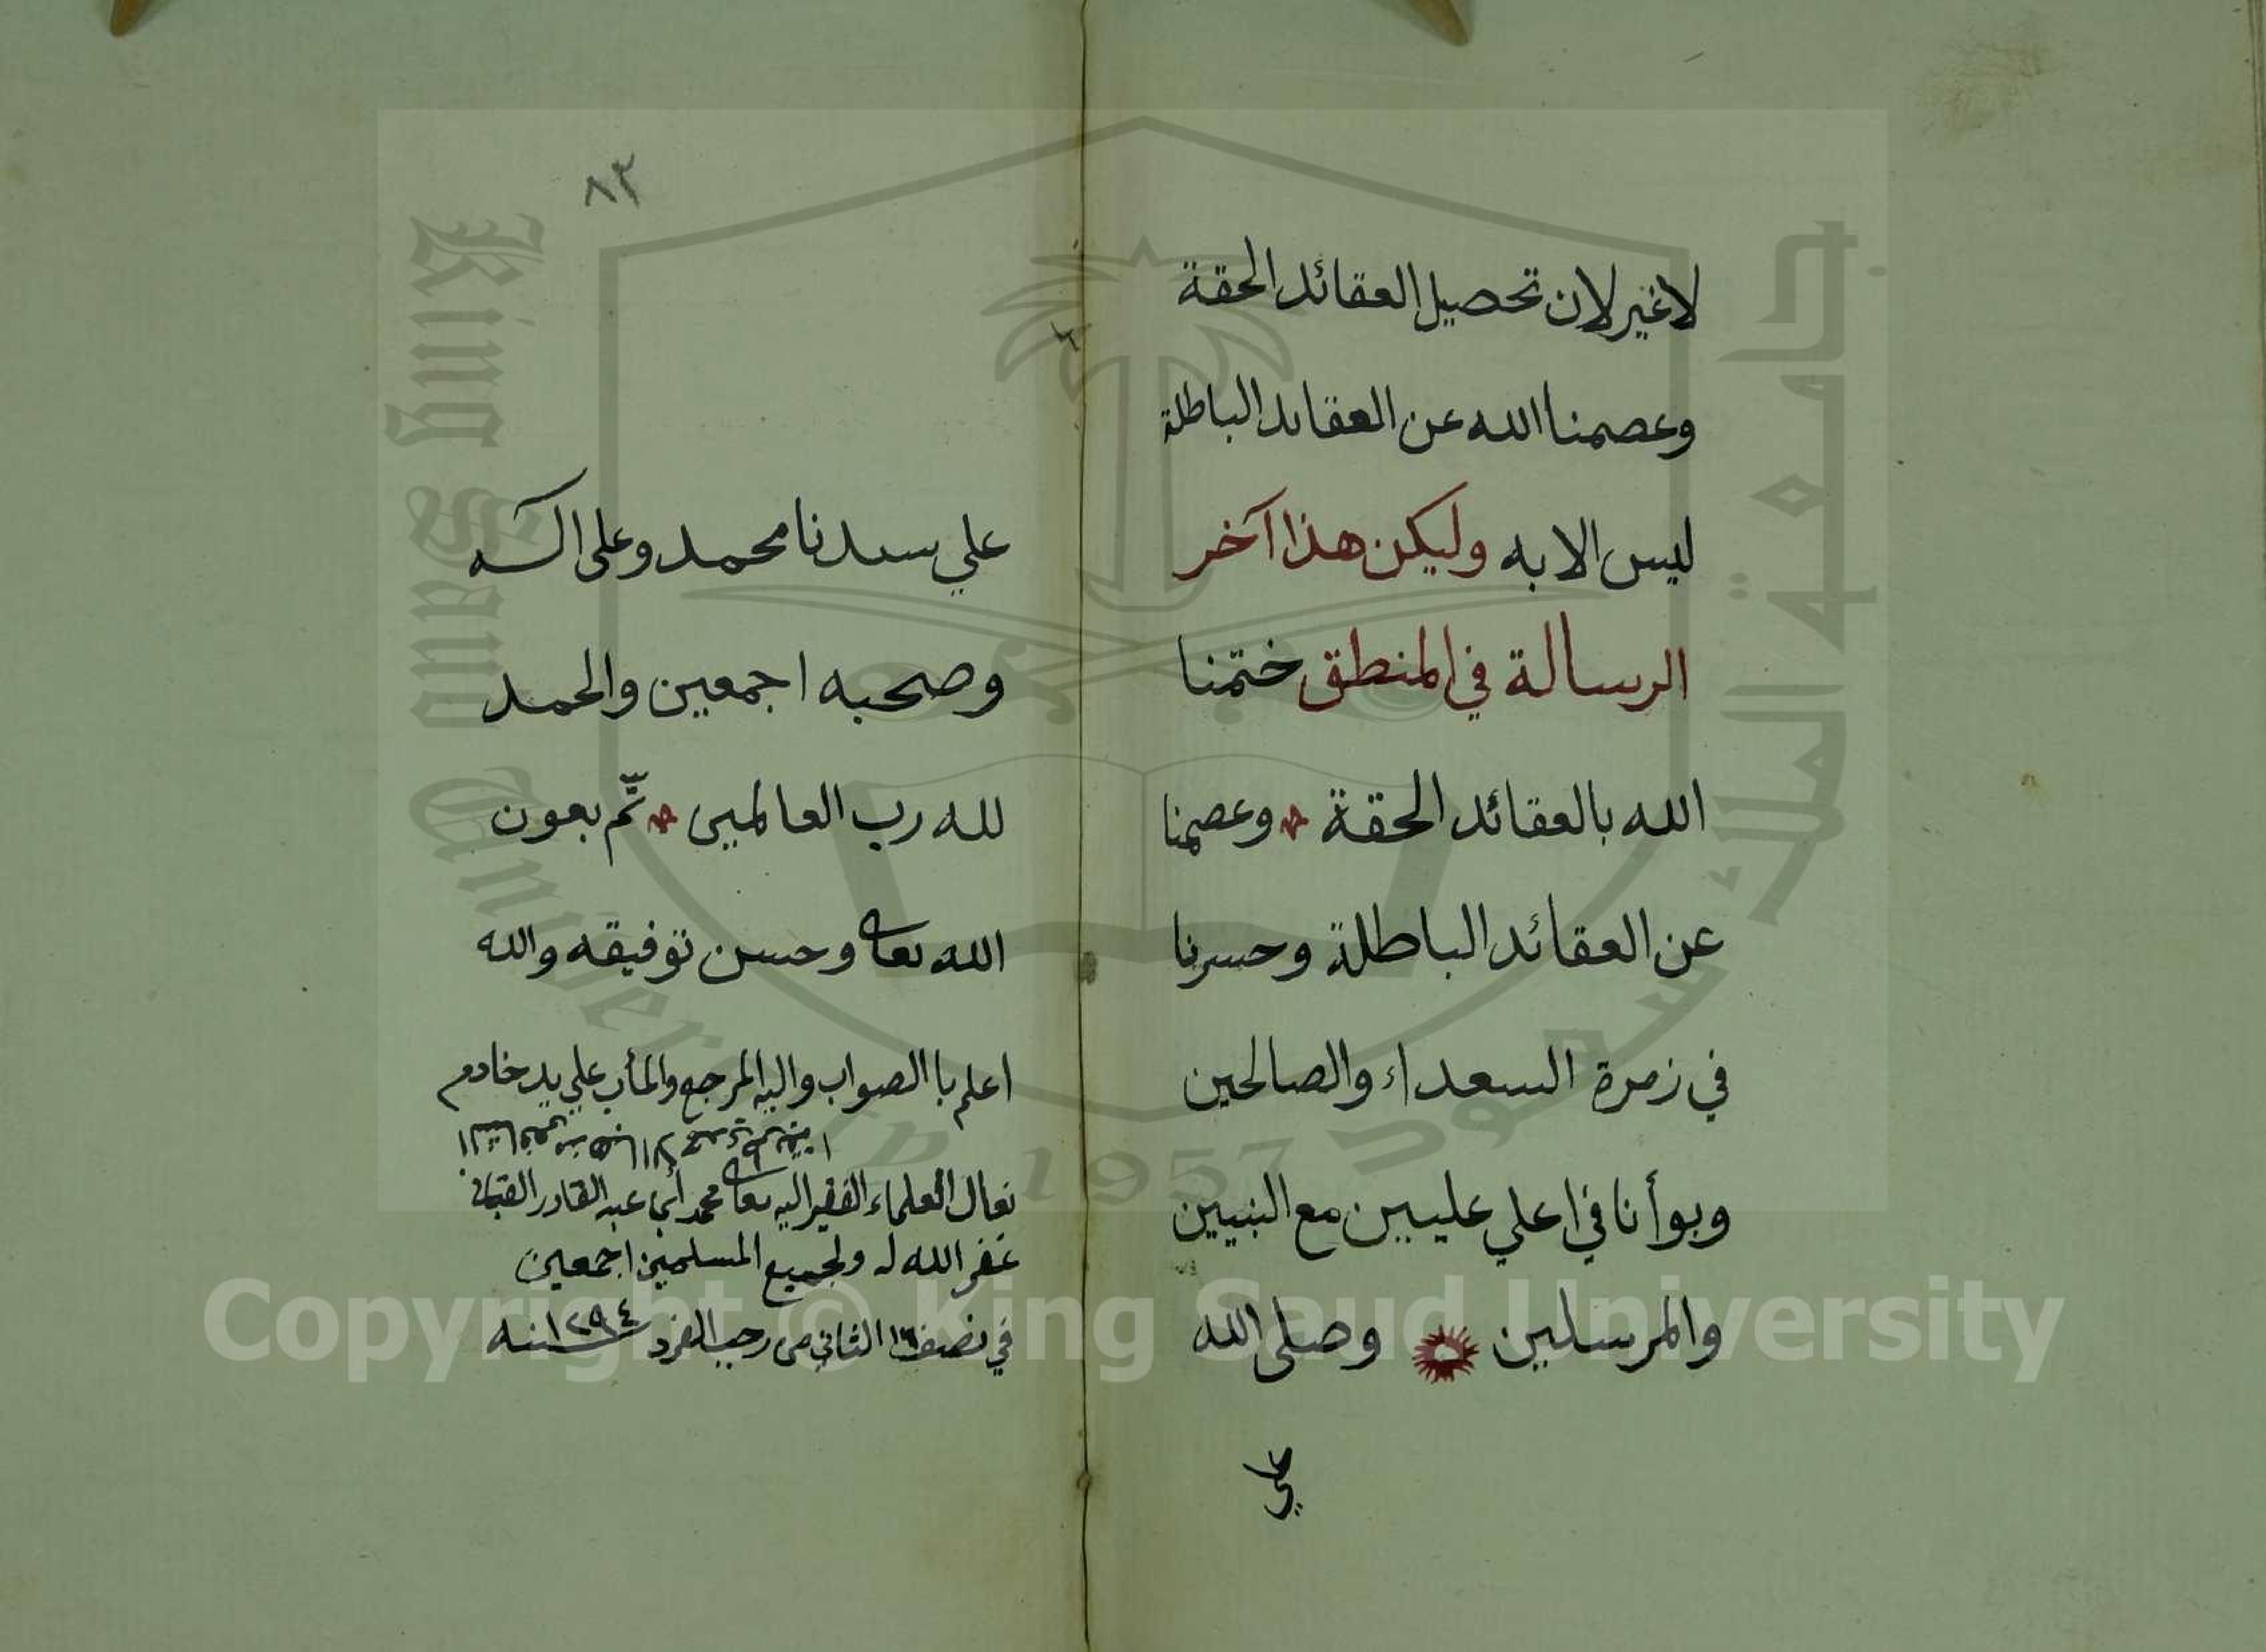 لاغير لان تحصيل العقائد الحقة
وعصمنا الله عن العقايد الباطلة
ليس الا به وليكن هذا آخر
الرسالة في المنطق ختمنا
الله بالعقائد الحقة وعصمنا
عن العقائد الباطلة وحسرنا
في زمرة السعداء والصالحين
وبوأنا في اعلي عليين مع النبيين
والمرسلين وصلى الله
علي
٨٢
علي سيدنا محمد وعلى اله
وصحبه اجمعين والحمد
لله رب العالمين تّم بعون
الله تعا وحسن توفيقه والله
اعلم با الصواب واليه المرجع والمأب علي يد خادم
نعال العلماء الفقير اليه تعا محمد أبي عبد القادر القباني
غفر الله له ولجميع المسلمين اجمعين
في نصف الثاني من رجب الفرد سنه ١٢٩٤
King Saud University
جامعة الملك سعود
1957
Copyright © King Saud University